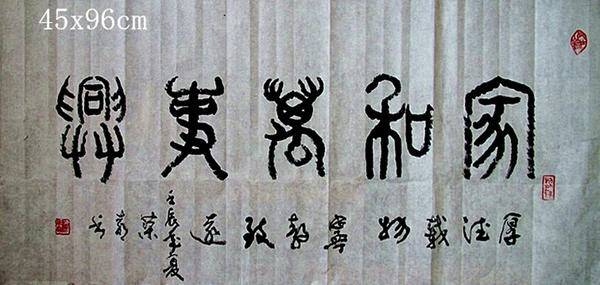 45x96cm
家和萬事興
厚德載物寧静致遠
壬辰夏